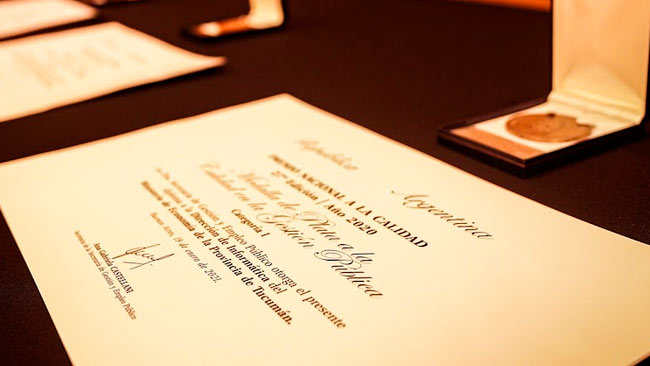 República Argentina
PREMIO NACIONAL A LA CALIDAD
27ª Edición | Año 2020
Medalla de Plata a la
Calidad en la Gestión Pública
Categoría I
La Secretaría de Gestión y Empleo Público otorga el presente
diploma a la Dirección de Informática del
Ministerio de Economía de la Provincia de Tucumán.
Buenos Aires, 19 de enero de 2021.
Ana Gabriela CASTELLANI
Secretaria de la Secretaría de Gestión y Empleo Público